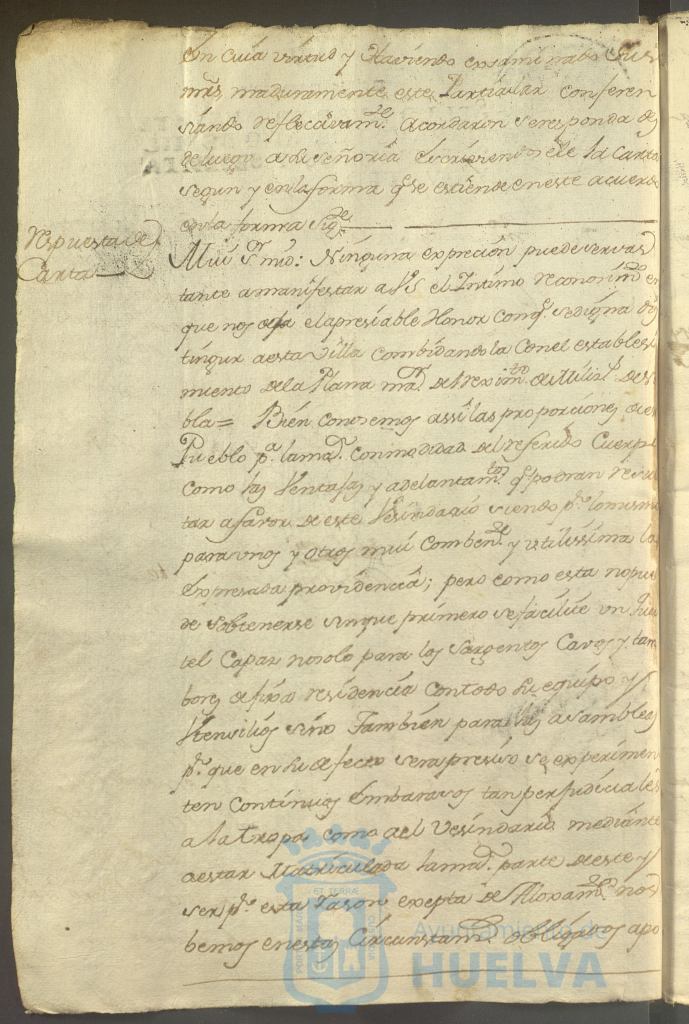 En cuia virtud y Haviendo examinado Sus
mrs. maduramente este Particular conferen
siando reflecsivamte. Acordaron se responda des
de luego á su señoria escriviendosele la carta
segun y en la forma qe. se estiende en este acuerdo
en la forma sigte.
Respuesta de
Carta
Mui Sr. mio: Ninguna expreción puede ser vas
tante a manifestar a VS el Intimo reconosimto. en
que nos el apresiable Honor con q. se digna dis
tinguir a esta Villa combidandola con el estableci
miento de la Plana mr. del reximto. de Milis. de Se
bla= Bién conosemos assi las proporciónes de el
Pueblo pa. la mar. conmodidad del referido Cuerpo
como las Ventajas y adelantamtos. q. podran resul
tar a favor de este Vesindario siendo pr. lo mismo
para unos y otros mui combente. y utilissima la
expresada providencia; pero como esta no pue
de obtenerse sin que primero se facilite un Quar
tel Capaz no solo para los Sargentos Cavos y tam
bores de fixa residencia con todo su equipo y
Utensilios sino También para las asambleas
pr. que en su defecto sera presiso se experimen
ten continuos Embarasos tan perjudiciales
a la tropa como al Vesindario mediante
a estar Matriculada la mar. parte de este y
ser pr. esta rason exepta de Aloxamto. nos
bemos en estas Circunstans. obligados a po
Ayuntamiento de
HUELVA